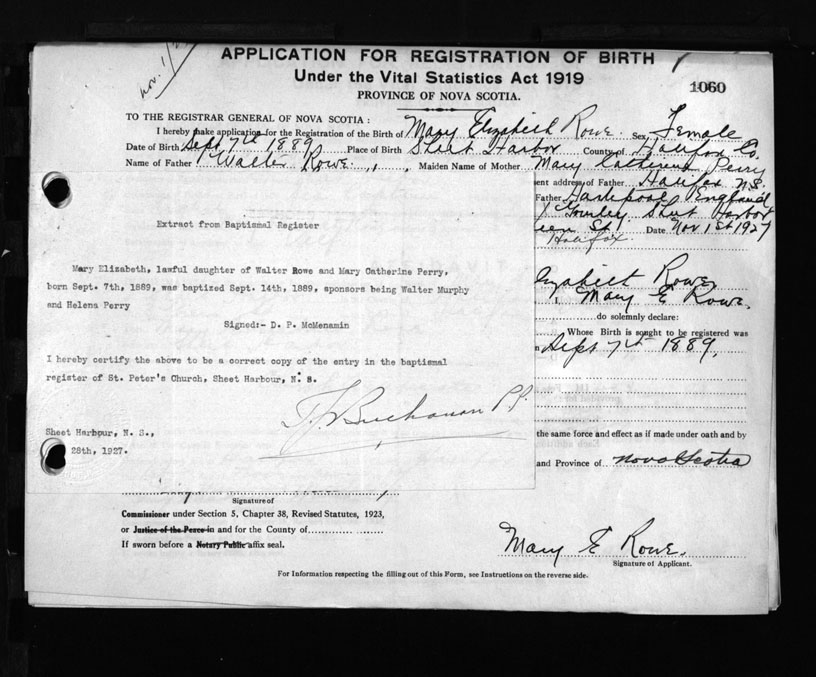 nov. 1/
APPLICATION FOR REGISTRATION OF BIRTH
Under the Vital Statistics Act 1919
1060
PROVINCE OF NOVA SCOTIA.
TO THE REGISTRAR GENERAL OF NOVA SCOTIA:
I hereby make application for the Registration of the Birth of Mary Elizabeth Rowe. Sex Female
Date of Birth Sept 7th 1889 Place of Birth Sheet Harbor County of Halifax Co.
Name of Father Walter Rowe. Maiden Name of Mother Mary Catherine Perry
ent address of Father Halifax N.S.
Father Hartlepool England
Gourley Sheet Harbor
een St Date Nov 1st 1927
Halifax.
Extract from Baptismal Register
Mary Elizabeth, lawful daughter of Walter Rowe and Mary Catherine Perry,
born Sept. 7th, 1889, was baptized Sept. 14th, 1889, sponsors being Walter Murphy
and Helena Perry
Signed:- D. P. McMenamin
I hereby certify the above to be a correct copy of the entry in the baptismal
register of St. Peter's Church, Sheet Harbour, N. S.
Buchanan P.P.
Sheet Harbour, N. S.,
28th, 1927.
lizabeth Rowe.
I, Mary E Rowe.
do solemnly declare:
Whose Birth is sought to be registered was
n Sept 7th 1889.
the same force and effect as if made under oath and by
and Province of Nova Scotia
Signature of
Commissioner under Section 5, Chapter 38, Revised Statutes, 1923,
or Justice of the Peace in and for the County of
If sworn before a Notary Public affix seal.
Mary E Rowe.
Signature of Applicant.
For Information respecting the filling out of this Form, see Instructions on the reverse side.